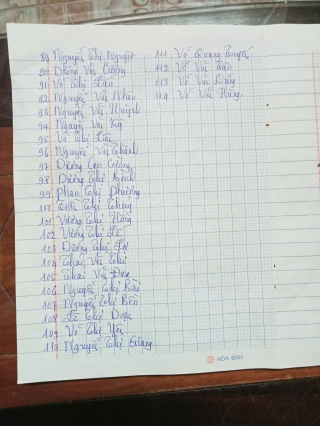 89 Nguyễn Thị Nguyệt
90 Dương Văn Cường
91 Võ Thị Lan
92 Nguyễn Văn Nhân
93 Nguyễn Văn Huỳnh
94 Nguyễn Văn Kỳ
95 Võ Thị Lài
96 Nguyễn Văn Thành
97 Dương Cao Cường
98 Dương Thị Bình
99 Phan Thị Phượng
Trần Thị Thủy
101 Vương Thị Hồng
102 Vương Thị Lê
103 Dương Thị Lợi
104 Thái Văn Thi
105 Thái Văn Đức
106 Nguyễn Thị
107 Nguyễn Thị Bền
108 Lê Thị Dục
109 Võ Thị Yến
110 Nguyễn Thị
111 Võ Quang Tuyến
112 Võ Văn
113 Võ Văn Dũng
114 Võ Văn Hùng
HÒA BÌNH